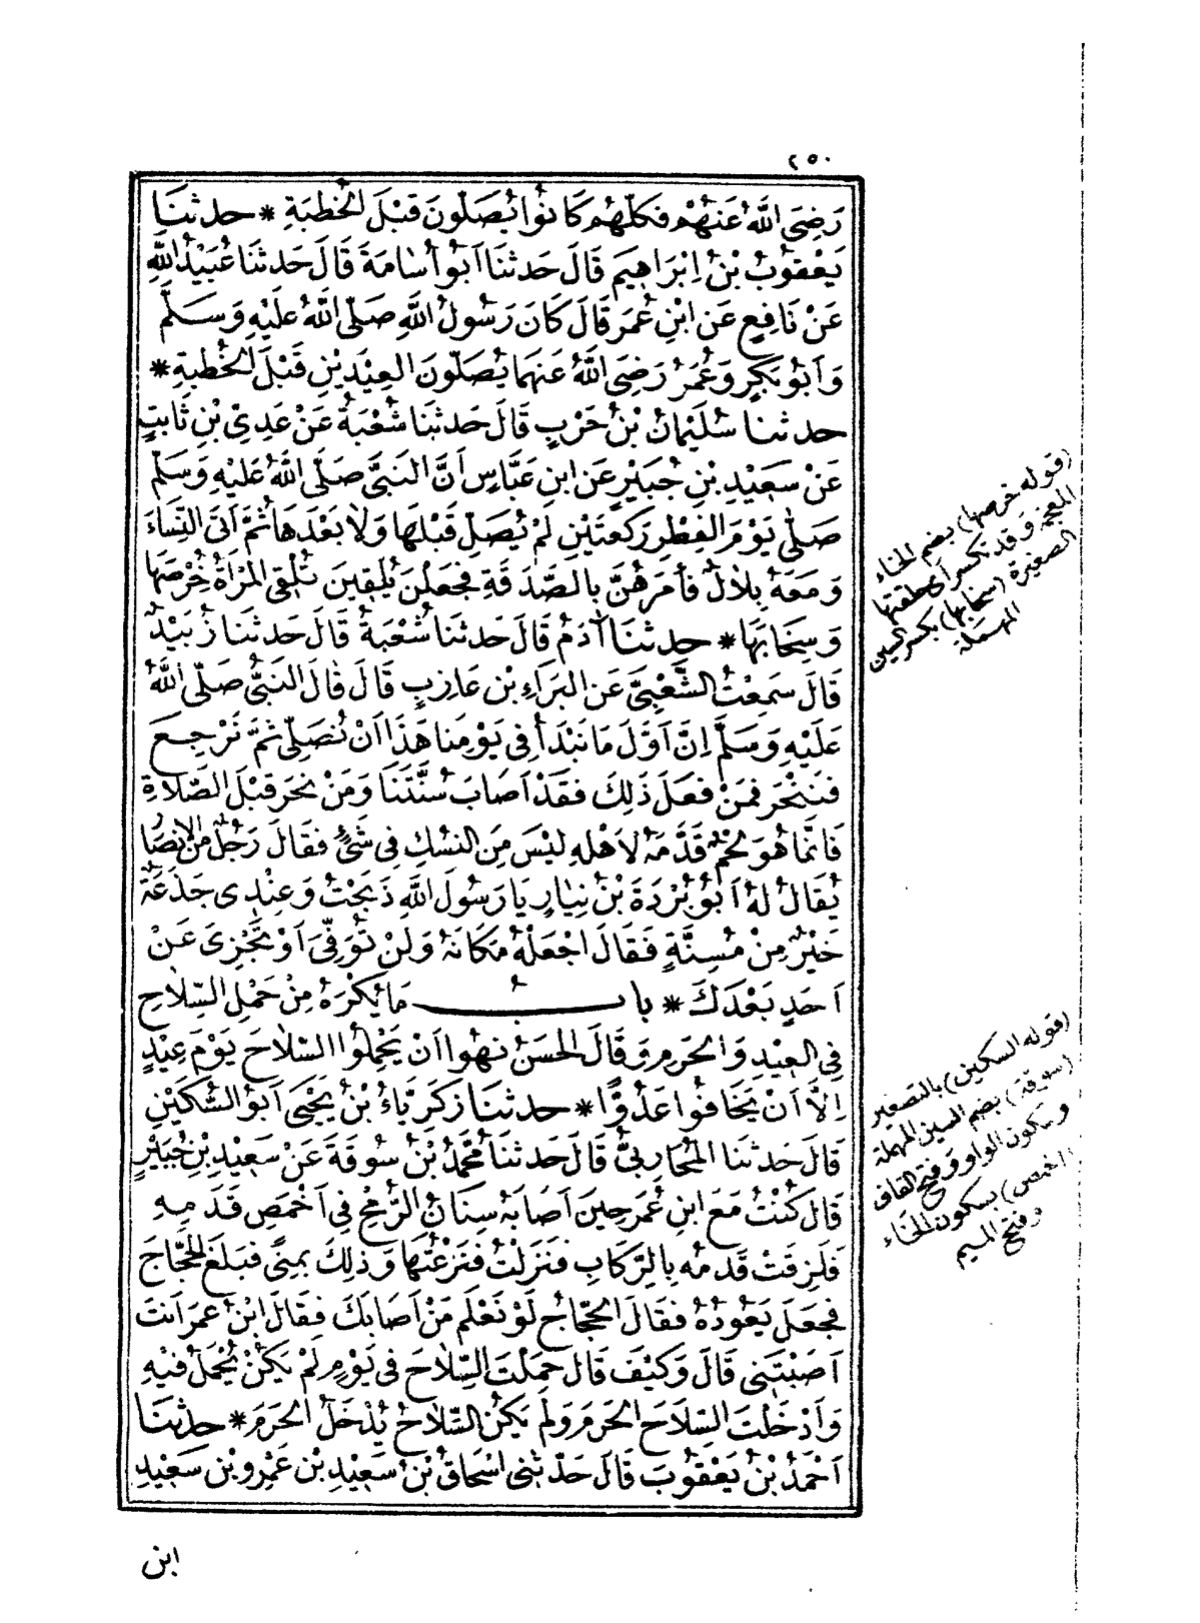 ٢٥٠
رَضِيَ اللَّهُ عَنْهُمْ فَكُلُّهُمْ كَانُوا يُصَلُّونَ قَبْلَ الْخُطْبَةِ * حدثنَا
يَعْقُوبُ بْنُ اِبْرَاهِيمَ قَالَ حَدثنَا اَبُو اُسَامَةَ قَالَ حَدثنَا عُبَيْدُ اللَّهِ
عَنْ نَافِعٍ عَنِ ابْنِ عُمَرَ قَالَ كَانَ رَسُولُ اللَّهِ صَلَّى اللَّهُ عَلَيْهِ وَسَلَّمَ
وَاَبُو بَكْرٍ وَعُمَرُ رَضِيَ اللَّهُ عَنْهُمَا يُصَلُّونَ الْعِيْدَيْنِ قَبْلَ الْخُطْبَةِ *
حدثنا سُلَيْمَانُ بْنُ حَرْبٍ قَالَ حَدثنَا شُعْبَةُ عَنْ عَدِيِّ بْنِ ثَابِتٍ
عَنْ سَعِيْدِ بْنِ جُبَيْرٍ عَنِ ابنِ عَبَّاسٍ اَنَّ النَّبِيَّ صَلَّى اللَّهُ عَلَيْهِ وَسَلَّمَ
صَلَّى يَوْمَ الفِطْرِ رَكْعَتَيْنِ لَمْ يُصَلِّ قَبْلَهَا وَلَا بَعْدَهَا ثُمَّ اَتَى النِّسَاءَ
وَمَعَهُ بِلَالٌ فَاَمَرَهُنَّ بِالصَّدَقَةِ فَجَعَلْنَ يُلْقِينَ تُلْقِى المَرْاَةُ خُرْصَهَا
وَسِخَابَهَا * حدثنَا آدَمُ قَالَ حَدثنَا شُعْبَةُ قَالَ حَدثنَا زُبَيْدٌ
قَالَ سَمِعْتُ الشَّعْبِيَّ عَنِ البَرَاءِ بْنِ عَازِبٍ قَالَ قَالَ النَّبِيُّ صَلَّى اللَّهُ
عَلَيْهِ وَسَلَّمَ اِنَّ اَوَّلَ مَا نَبْدَاُ فِى يَوْمِنَا هٰذَا اَنْ نُصَلِّىَ ثُمَّ نَرْجِعَ
فَنَنْحَرَ فَمَنْ فَعَلَ ذَلِكَ فَقَدْ اَصَابَ سُنَّتَنَا وَمَنْ نَحَرَ قَبْلَ الصَّلَاةِ
فَاِنَّمَا هُوَ لَحْمٌ قَدَّمَهُ لِاَهْلِهِ لَيْسَ مِنَ النُسُكِ فِى شَئٍ فَقَالَ رَجُلٌ مِنَ الاَنْصَارِ
يُقَالُ لَهُ اَبُو بُرْدَةَ بْنُ نِيَارٍ يَا رَسُولَ اللَّهِ ذَبَحْتُ وَعِنْدِى جَذَعَةٌ
خَيْرٌ مِنْ مُسِنَّةٍ فَقَالَ اجْعَلْهُ مَكَانَهُ وَلَنْ تُوَفِّىَ اَوْ تَجْزِىَ عَنْ
اَحَدٍ بَعْدَكَ * بابُ مَا يُكْرَهُ مِنْ حَمْلِ السِّلَاحِ
فِى العِيْدِ وَالحَرَمِ وَقَالَ الحَسَنُ نُهُوا اَنْ يَحْمِلُوا السِّلَاحَ يَوْمَ عِيْدٍ
اِلَّا اَنْ يَخَافُوا عَدُوًّا * حدثنَا زَكَرِيَّاءُ بْنُ يَحْيَى اَبُو السُّكَيْنِ
قَالَ حَدثنَا المُحَارِبِيُّ قَالَ حَدثنَا مُحَمَّدُ بْنُ سُوقَةَ عَنْ سَعِيْدِ بْنِ جُبَيْرٍ
قَالَ كُنْتُ مَعَ ابنِ عُمَرَ حِينَ اَصَابَهُ سِنَانُ الرُّمْحِ فِى اَخْمَصِ قَدَمِهِ
فَلَزِقَتْ قَدَمُهُ بِالرِّكَابِ فَنَزَلْتُ فَنَزَعْتُهَا وَذلِكَ بِمِنًى فَبَلَغَ الحَجَّاجَ
فَجَعَلَ يَعُودُهُ فَقَالَ الحَجَّاجُ لَوْ نَعْلَمُ مَنْ اَصَابَكَ فَقَالَ ابْنُ عُمَرَ اَنتَ
اَصَبْتَنِى قَالَ وَكَيْفَ قَالَ حَمَلْتَ السِّلَاحَ فِى يَوْمٍ لَمْ يَكُنْ يُحْمَلُ فِيْهِ
وَاَدْخَلْتَ السِّلَاحَ الحَرَمَ وَلَمْ يَكُنِ السِّلَاحُ يُدْخَلُ الحَرَمَ * حدثنَا
اَحْمَدُ بْنُ يَعْقُوبَ قَالَ حَدَّثنِى اسْحَاقُ بْنُ سَعِيْدِ بْنِ عَمْرِو بْنِ سَعِيْدِ
ابن
(قوله خرصها) بضم الخاء
المعجمة وقد تكسر اى حلقتها
الصغيرة (سخابها) بكسر السين
المهملة
(قوله السكين) بالتصغير
(سوقة) بضم السين المهملة
وسكون الواو وفتح القاف
(اخمص) بسكون الخاء
وفتح الميم